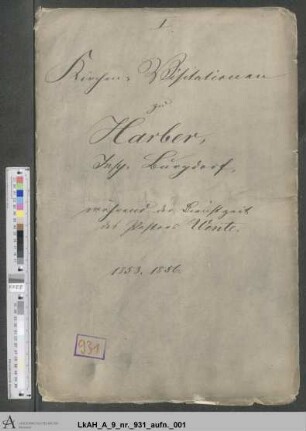 1.
Kirchen-Visitationen
zu
Harber,
Insp. Burgdorf,
während der Dienstzeit
des Pastors Wente.
1853. 1886.
931
LkAH_A_9_nr._931_aufn._001